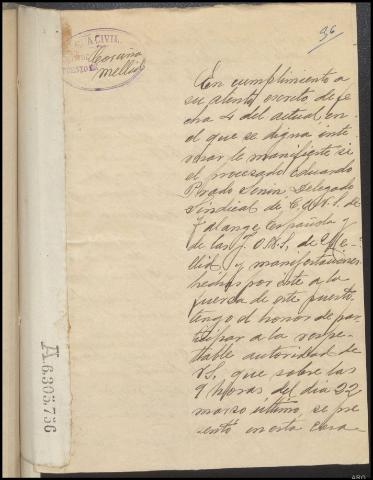 96
A CIVIL
Coruña
Mellid
En cumplimiento a
su atento escrito de fe
cha 4 del actual en
el que se digna inte
resar le manifieste si
el procesado Eduardo
Prado Senin Delegado
Sindical de C.O.N.S. de
Falange Española y
de las J.O.N.S. de Me-
llid y manifestaciones
hechas por este a la
fuerza de este puesto,
tengo el honor de par
ticipar a la respe-
table autoridad de
V.S. que sobre las
9 horas del dia 22
marzo último, se pre
sentó en esta Casa
A6.305.736